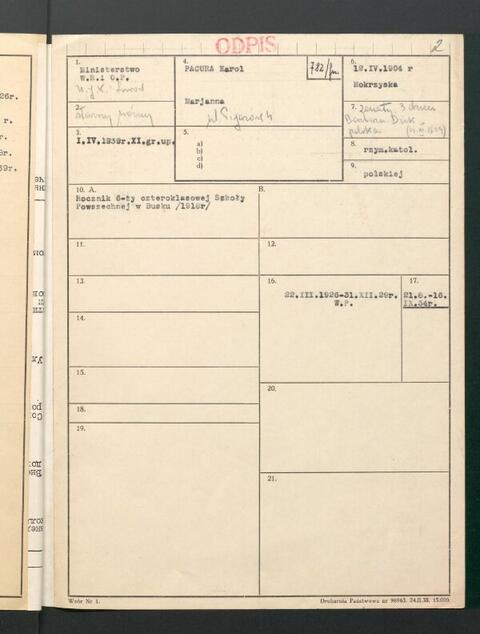 ODPIS
2
1.
Ministerstwo
W.R.i O.P.
U.J.K. Lwow
4.
PACURA Karol
782/
Marjanna
6.
12.IV.1904 r
Mokrzyska
2.
starszy woźny
7. żonaty 3 dzieci
Barbara
polska
3.
I.IV.1939r.XI.gr.up.
5.
a)
b)
c)
d)
8.
rzym.katol.
9.
polskiej
10. A.
Rocznik 6-ty czteroklasowej Szkoły
Powszechnej w Busku /1918r/
B.
11.
12.
13.
16.
22.III.1926-31.XII.29r.
W.P.
17.
21.8.-16.
IX.34r.
14.
15.
18.
19.
20.
21.
Wzór Nr 1.
Drukarnia Państwowa nr 96963. 24.II.38. 15.000.
26r.
r.
r.
39r.